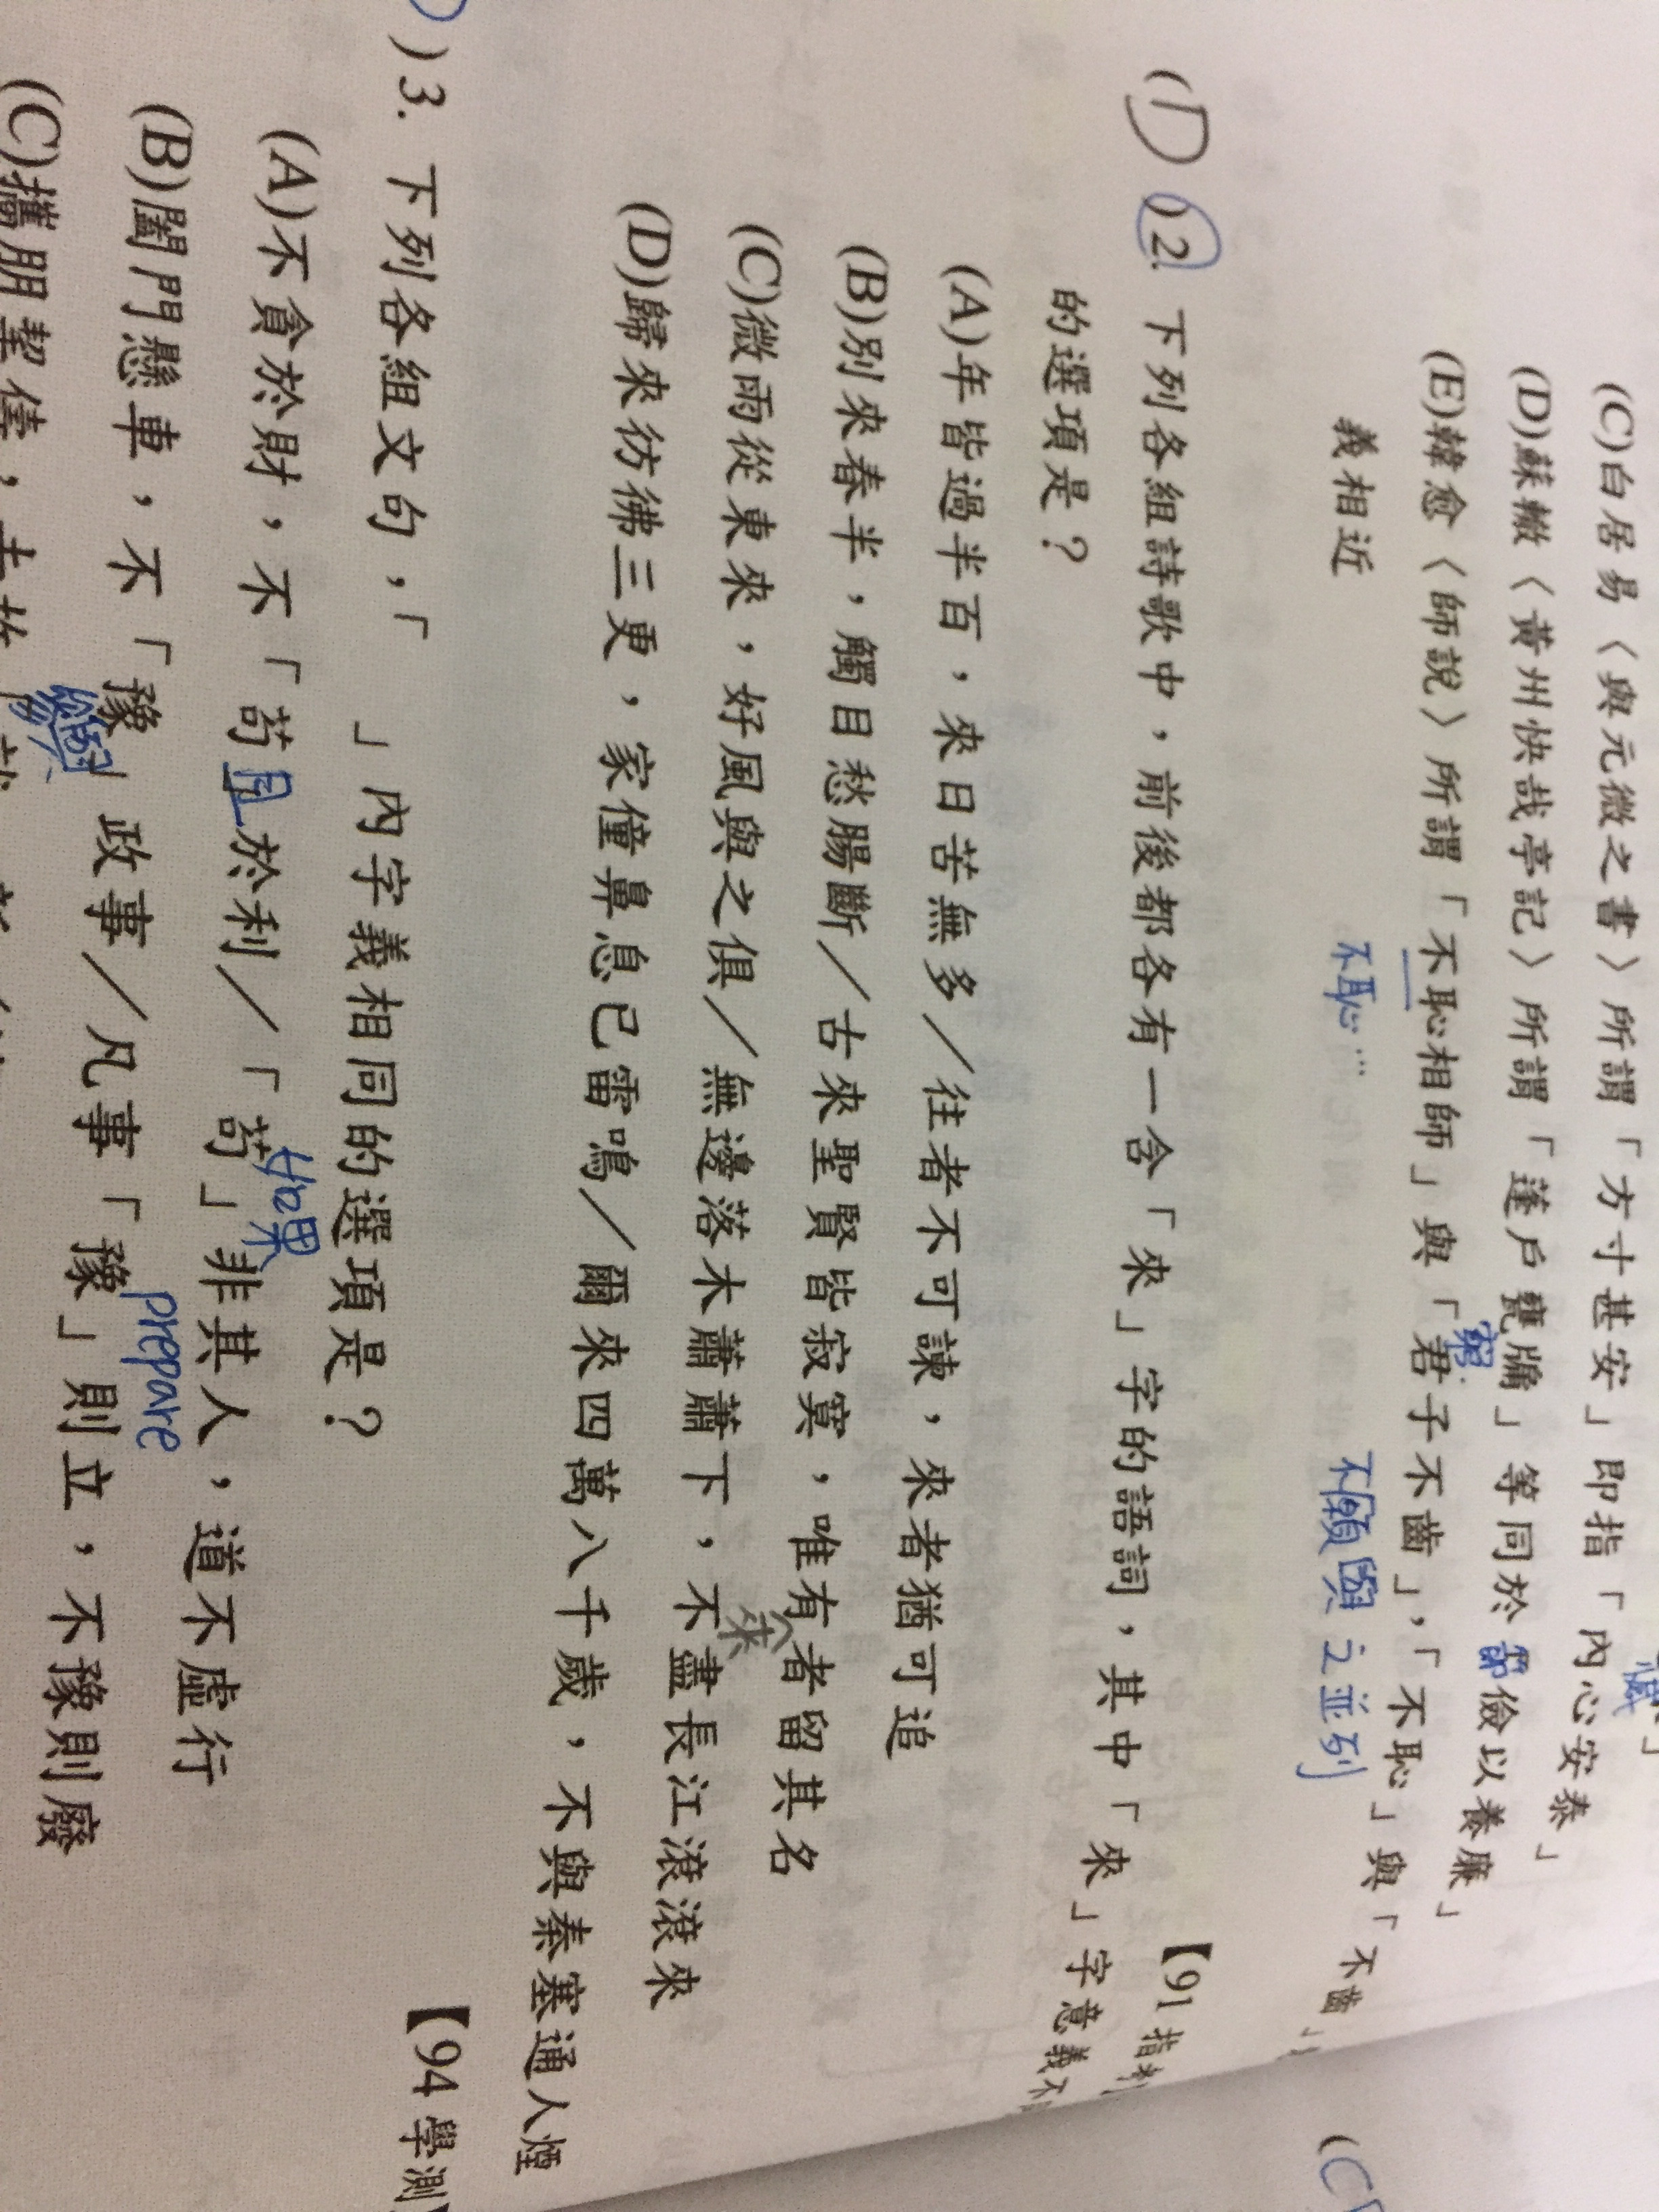 (C)白居易〈與元微之書〉所謂「方寸甚安」即指「內心安泰」
(D)蘇轍〈黃州快哉亭記〉所謂「蓬戶甕牖」等同於「節儉以養廉」
窮
(E)韓愈〈師說〉所謂「不恥相師」與「君子不齒」,「不恥」與「不齒」
義相近
不恥…
不願與之並列
(D)2. 下列各組詩歌中，前後都各有一含「來」字的語詞，其中「來」字意義不
【91指
的選項是？
(A)年皆過半百，來日苦無多／往者不可諫，來者猶可追
(B)別來春半，觸目愁腸斷／古來聖賢皆寂寞，唯有者留其名
(C)微雨從東來，好風與之俱／無邊落木蕭蕭下，不盡長江滾滾來
來
(D)歸來彷彿三更，家僮鼻息已雷鳴／爾來四萬八千歲，不與秦塞通人煙
)3. 下列各組文句，「 」內字義相同的選項是？
【94學測】
(A)不貪於財，不「苟」於利／「苟」非其人，道不虛行
且
如果
(B)闔門懸車，不「豫」政事／凡事「豫」則立，不豫則廢
prepare
(C)攜朋挈儔，